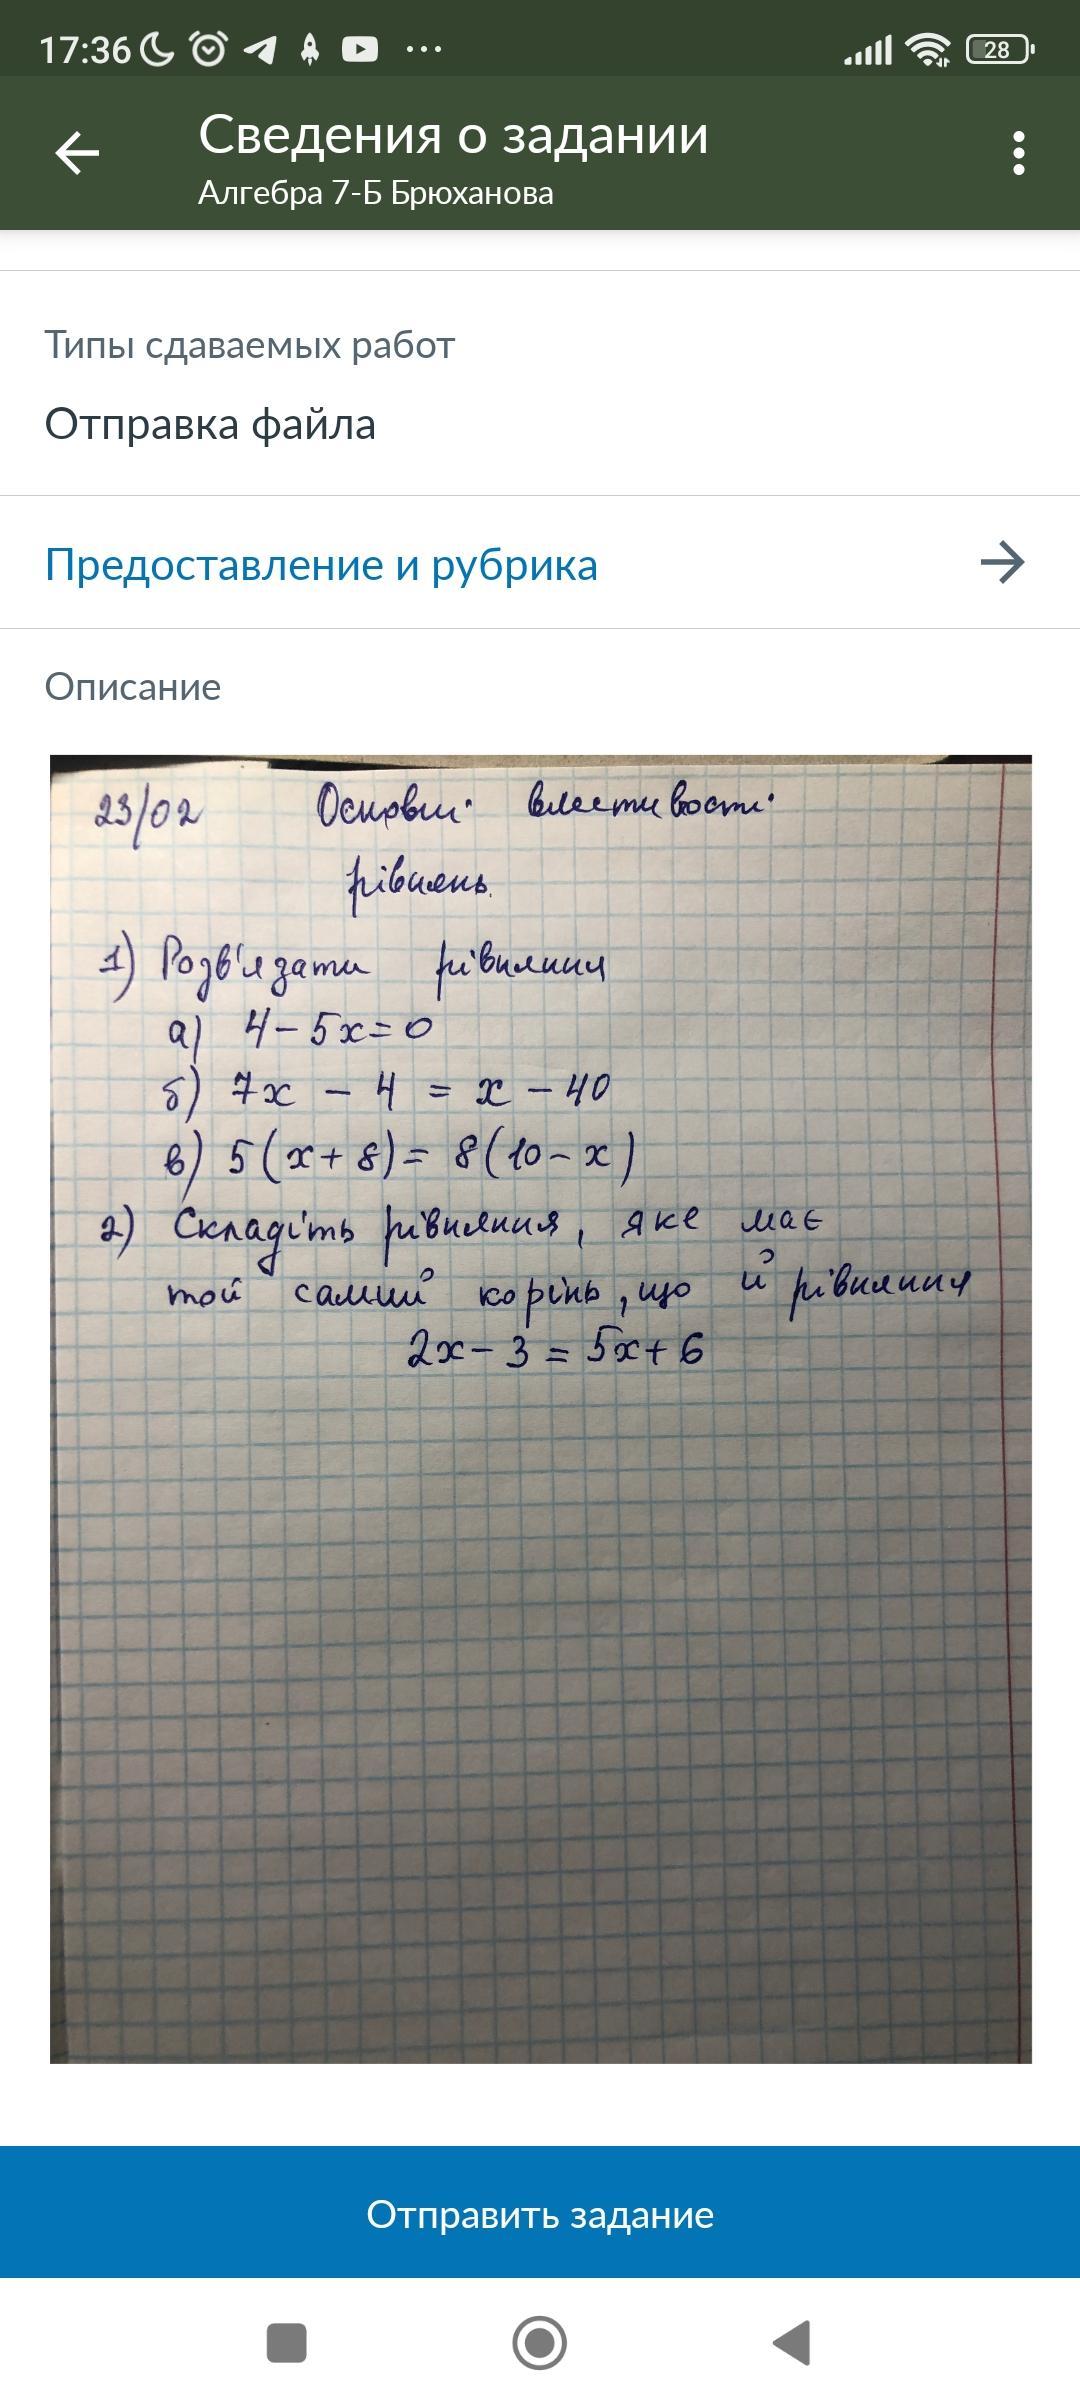 17:36
28
Сведения о задании
Алгебра 7-Б Брюханова
Типы сдаваемых работ
Отправка файла
Предоставление и рубрика
Описание
23/02 Основні властивості
рівнянь.
1) Розв'язати рівняння
а) 4 - 5x = 0
б) 7x - 4 = x - 40
в) 5(x + 8) = 8(10 - x)
2) Складіть рівняння, яке має
той самий корінь, що й рівняння
2x - 3 = 5x + 6
Отправить задание